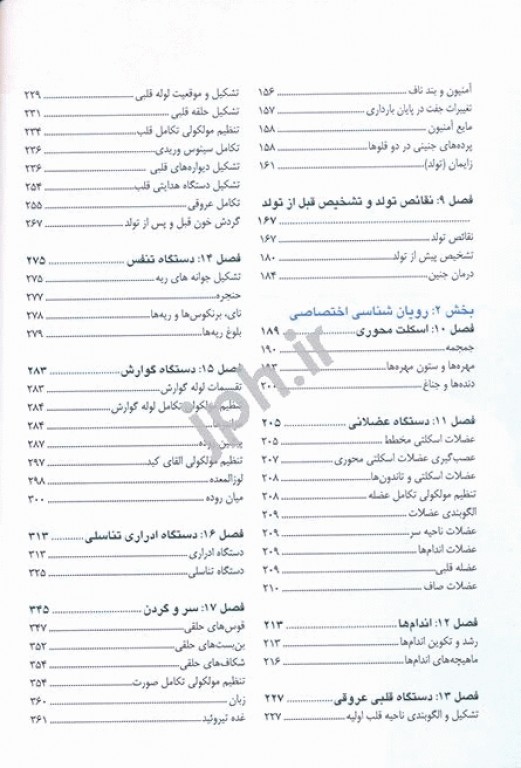 آمنیون و بند ناف ۱۵۶
تغییرات جفت در پایان بارداری ۱۵۷
مایع آمنیون ۱۵۸
پرده‌های جنینی در دو قلوها ۱۵۸
زایمان (تولد) ۱۶۱
فصل ۹: نقائص تولد و تشخیص قبل از تولد
۱۶۷
نقائص تولد ۱۶۷
تشخیص پیش از تولد ۱۸۰
درمان جنین ۱۸۴
بخش ۲: رویان شناسی اختصاصی
فصل ۱۰: اسکلت محوری ۱۸۹
جمجمه ۱۹۰
مهره‌ها و ستون مهره‌ها ۱۹۳
دنده‌ها و جناغ ۲۰۰
فصل ۱۱: دستگاه عضلانی ۲۰۵
عضلات اسکلتی مخطط ۲۰۵
عصب‌گیری عضلات اسکلتی محوری ۲۰۷
عضلات اسکلتی و تاندون‌ها ۲۰۸
تنظیم مولکولی تکامل عضله ۲۰۸
الگوبندی عضلات ۲۰۹
عضلات ناحیه سر ۲۰۹
عضلات اندام‌ها ۲۰۹
عضله قلبی ۲۰۹
عضلات صاف ۲۱۰
فصل ۱۲: اندام‌ها ۲۱۳
رشد و تکوین اندام‌ها ۲۱۳
ماهیچه‌های اندام‌ها ۲۱۶
فصل ۱۳: دستگاه قلبی عروقی ۲۲۷
تشکیل و الگوبندی ناحیه قلب اولیه ۲۲۷
تشکیل و موقعیت لوله قلبی ۲۲۹
تشکیل حلقه قلبی ۲۳۱
تنظیم مولکولی تکامل قلب ۲۳۴
تکامل سینوس وریدی ۲۳۶
تشکیل دیواره‌های قلبی ۲۳۶
تشکیل دستگاه هدایتی قلب ۲۵۴
تکامل عروقی ۲۵۵
گردش خون قبل و پس از تولد ۲۶۷
فصل ۱۴: دستگاه تنفس ۲۷۵
تشکیل جوانه های ریه ۲۷۵
حنجره ۲۷۷
نای، برنکوس‌ها و ریه‌ها ۲۷۸
بلوغ ریه‌ها ۲۷۹
فصل ۱۵: دستگاه گوارش ۲۸۳
تقسیمات لوله گوارش ۲۸۳
تنظیم مولکولی تکامل لوله گوارش ۲۸۴
۲۸۴
پیشین روده ۲۸۷
تنظیم مولکولی القای کبد ۲۹۷
لوزالمعده ۲۹۸
میان روده ۳۰۰
فصل ۱۶: دستگاه ادراری تناسلی ۳۱۳
دستگاه ادراری ۳۱۳
دستگاه تناسلی ۳۲۵
فصل ۱۷: سر و گردن ۳۴۵
قوس‌های حلقی ۳۴۷
بن‌بست‌های حلقی ۳۵۲
شکاف‌های حلقی ۳۵۴
تنظیم مولکولی تکامل صورت ۳۵۴
زبان ۳۶۰
غده تیروئید ۳۶۱
jph.ir